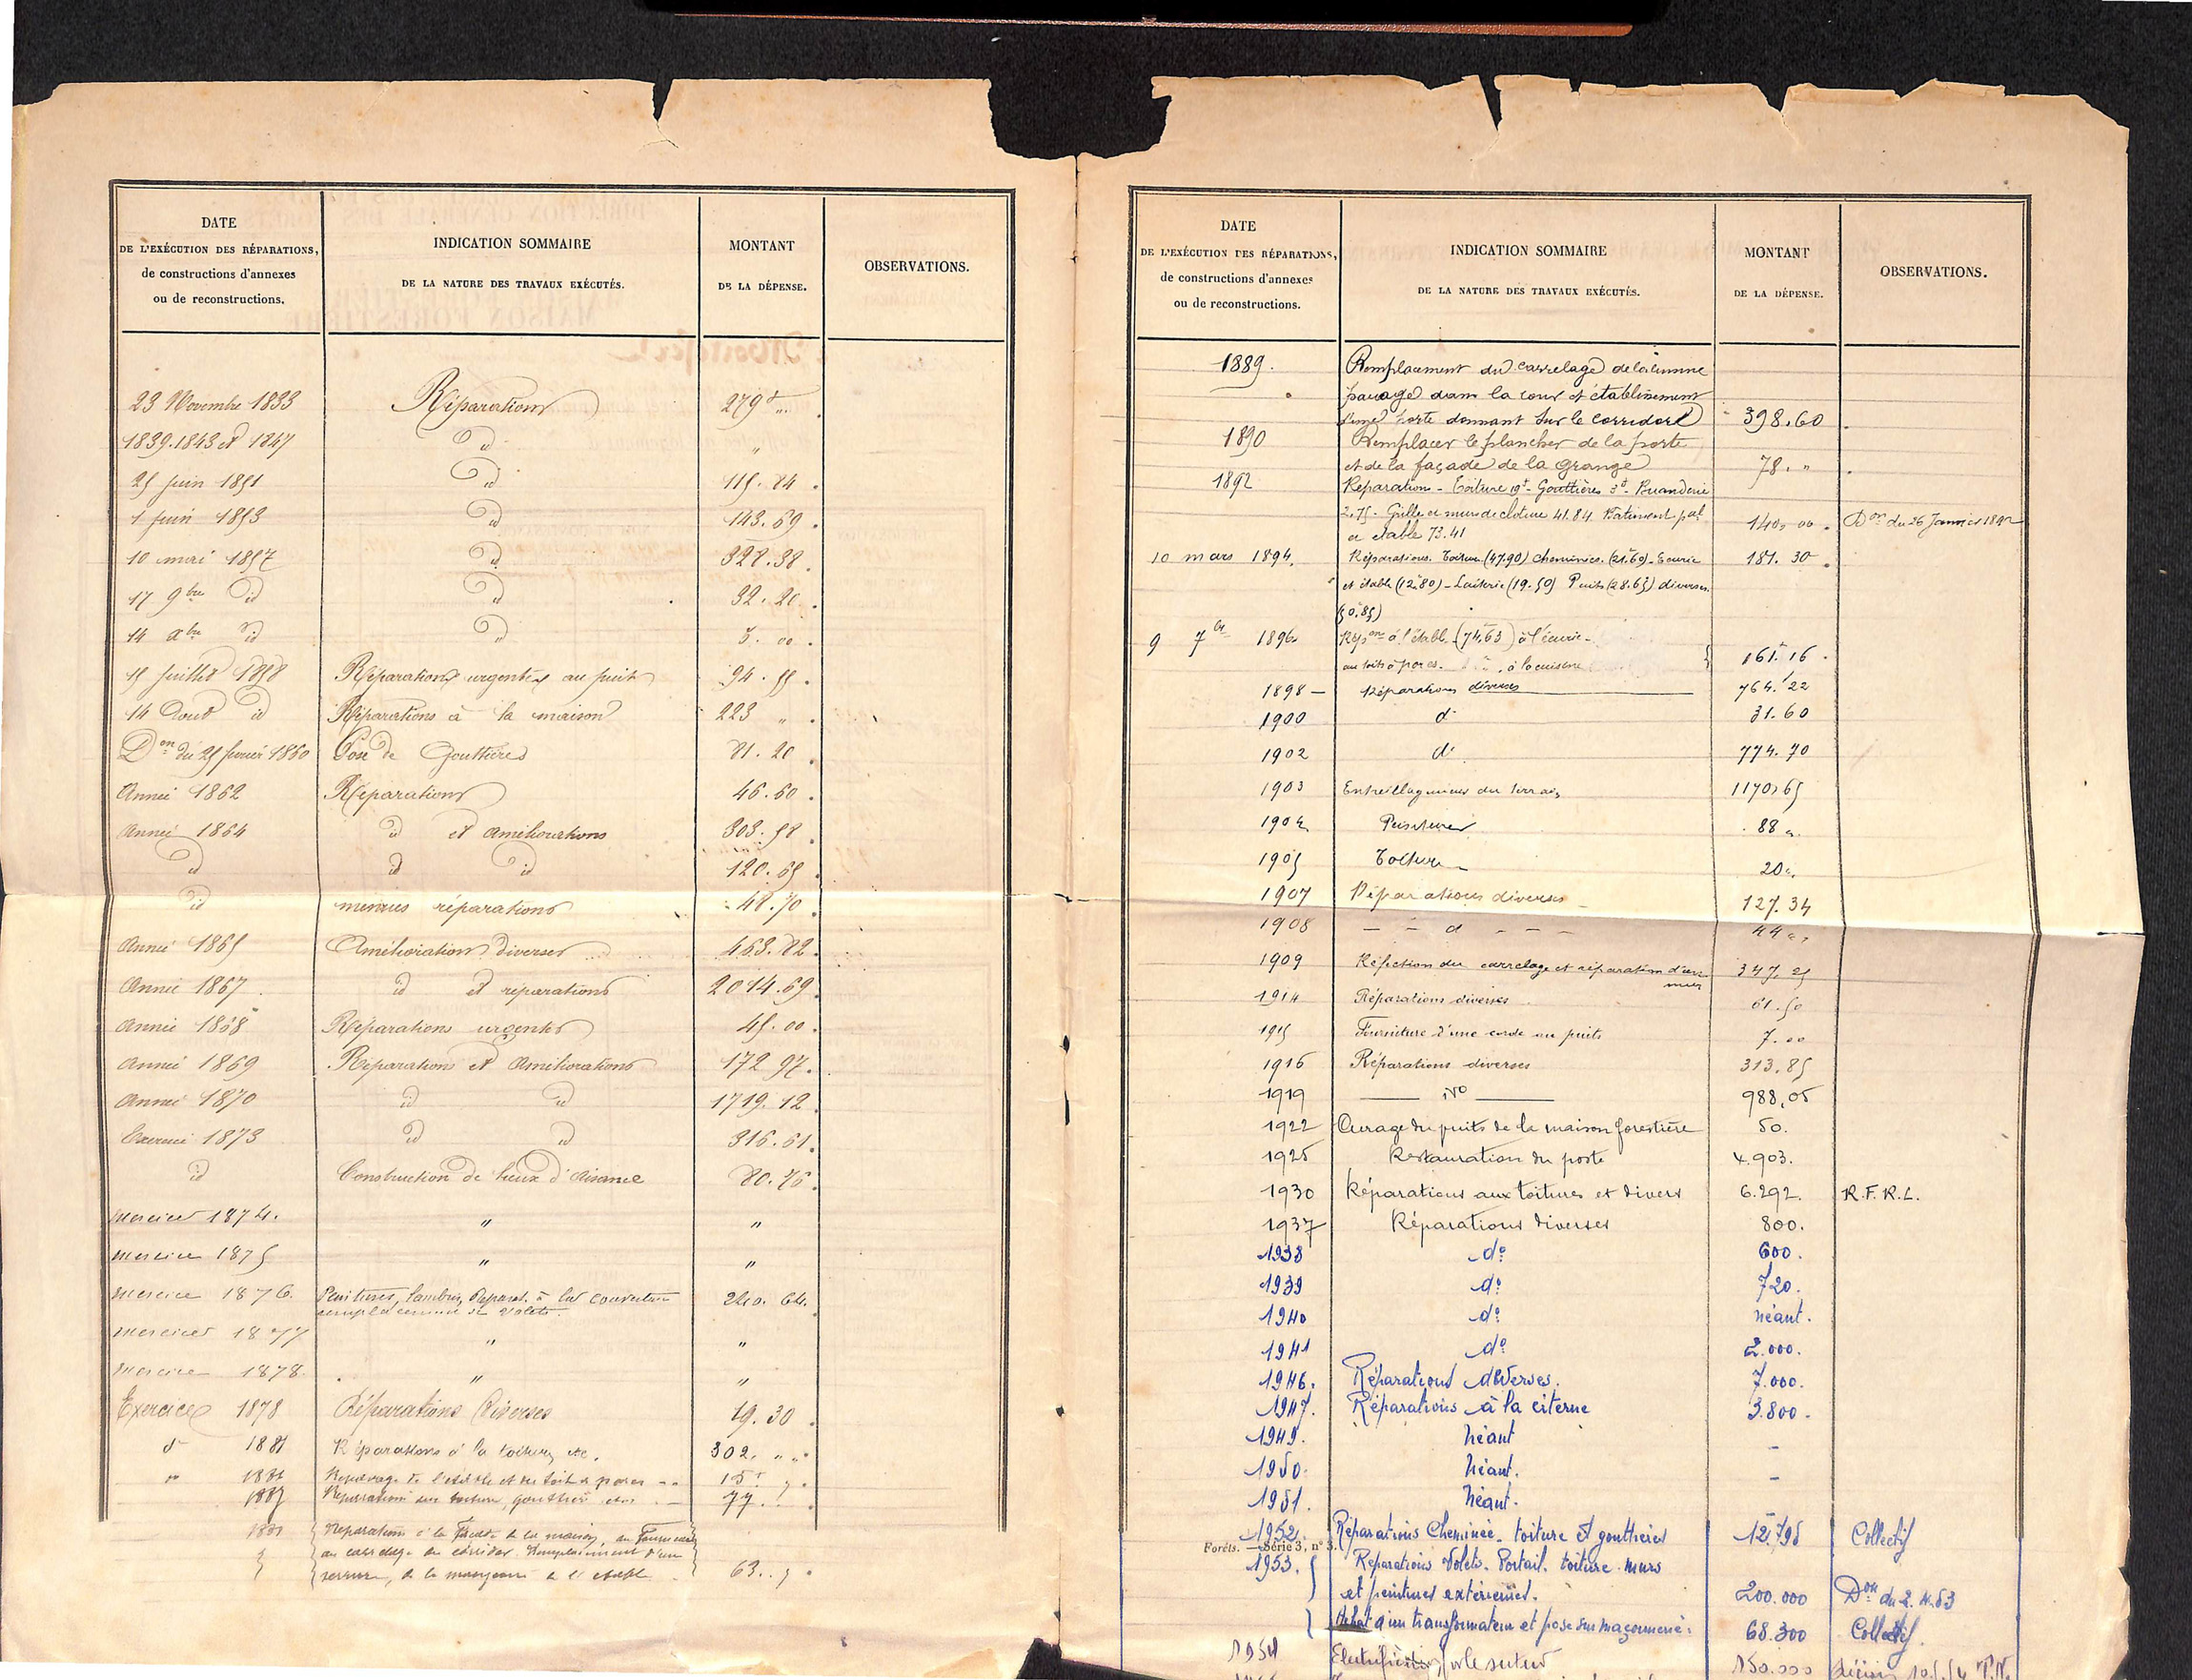 DATE
DE L'EXÉCUTION DES RÉPARATIONS,
de constructions d'annexes
ou de reconstructions.
INDICATION SOMMAIRE
DE LA NATURE DES TRAVAUX EXÉCUTÉS.
MONTANT
DE LA DÉPENSE.
OBSERVATIONS.
23 Novembre 1833 Réparations 279
1839.1843 et 1847 id "
25 juin 1851 id 115.84
1 juin 1853 id 143.69
10 mai 1857 id 328.38
17 9bre id id 32.20
14 Xbre id id 5.00
15 juillet 1858 Réparations urgentes au puits 94.55
14 Aout id Réparations à la maison 223 "
Don du 25 février 1860 Pose de Gouttières 81.20
Année 1862 Réparations 46.60
Année 1864 id et améliorations 303.58
id id id 120.65
id menues réparations 48.70
Année 1865 Amélioration diverses 463.82
Année 1867 id et réparations 2014.69
Année 1868 Réparations urgentes 45.00
Année 1869 Réparations et Améliorations 172.97
Année 1870 id id 1719.12
Exercice 1873 id id 316.61
id Construction de lieux d'aisance 80.76
Exercice 1874. " "
Exercice 1875 " "
Exercice 1876. Peintures, lambris, Réparat. à la couverture 240.64
remplacement de volets
Exercice 1877 " "
Exercice 1878 " "
Exercice 1878 Réparations Diverses 19.30
d° 1881 Réparations à la toiture, etc. 302. "
Repavage de l'étable et du toit à porcs 15
1887 Réparations sur toiture, gouttières 77.
Réparations à la façade de la maison, au
au carrelage du corridor. Remplacement d'une
serrure, de la mangeoire à l'étable 63.
DATE
DE L'EXÉCUTION DES RÉPARATIONS,
de constructions d'annexes
ou de reconstructions.
INDICATION SOMMAIRE
DE LA NATURE DES TRAVAUX EXÉCUTÉS.
MONTANT
DE LA DÉPENSE.
OBSERVATIONS.
1889. Remplacement du carrelage de la cuisine
pavage dans la cour et établissement
d'une porte donnant sur le corridor 398.60
1890 Remplacer le plancher de la porte
et de la façade de la Grange 78. "
1892 Réparation - Toiture 19f - Gouttières 3f - Buanderie
2.75 - Grille et murs de cloture 41.84 Batiment pal
et étable 73.41 140.00 Don du 26 Janvier 1892
10 mars 1894. Réparations. Toiture (47.90) Cheminées. (21.60) - Ecurie 181.30
et étable (12.80) - Laiterie (19.50) Puits (28.65) diverses
(50.85)
9 7bre 1896 Répon à l'étable (74.63) à l'écurie -
au toit à porcs. à la cuisine 161.16
1898 - Réparations diverses 764.22
1900 d° 31.60
1902 d° 774.70
1903 du terrain 1170.65
1904 Peintures 88
1905 Toiture 20
1907 Réparations diverses 127.34
1908 - - d - - - 44
1909 Réfection du carrelage et réparation d'un 347.25
mur
1914 Réparations diverses 61.50
1915 Fourniture d'une corde au puits 7.00
1916 Réparations diverses 313.85
1919 d° 988,05
1922 Curage du puits de la maison forestière 50.
1925 Restauration du poste 4.903.
1930 Réparations aux toitures et divers 6.292. R.F.R.L.
1937 Réparations diverses 800.
1938 d° 600.
1939 d° 720.
1940 d° néant.
1941 d° 2.000.
1946. Réparations diverses. 7.000.
1947. Réparations à la citerne 3.800.
1949. Néant -
1950. Néant. -
1951. Néant.
1952. Réparations Cheminée. toiture et gouttières 12.795 Collectif
Forêts. — Série 3, n° 3.
1953. Réparations Volets. Portail. toiture. murs
et peintures extérieures. 200.000 Don du 2.4.53
Achat d'un transformateur et pose sur maçonnerie. 68.300 Collectif.
1954 Electrification par le secteur 150.000